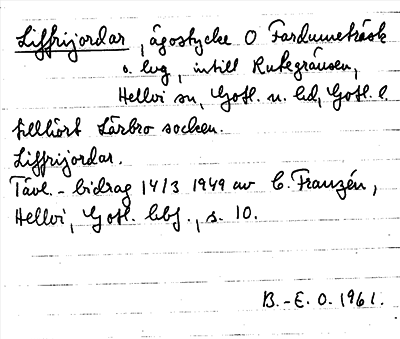 Liffrijordar, ägostycke O Fardumeträsk
o. lvg, intill Rutegränsen,
Hellvi sn, Gotl. n. hd, Gotl. l.
tillhört Lärbro socken.
Liffrijordar.
Tävl.-bidrag 14/3 1949 av C. Franzén,
Hellvi, Gotl. bbf., s. 10.
B.-E. O. 1961.